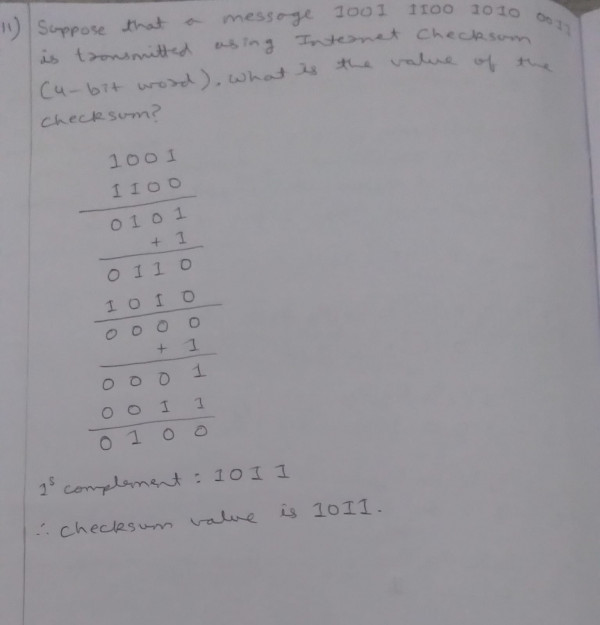 11) Suppose that a message 1001 1100 1010 0011
is transmitted using Internet Checksum
(4-bit word). What is the value of the
checksum?
1001
1100
0101
+ 1
0110
1010
0000
+ 1
0001
0011
0100
1s complement : 1011
∴ checksum value is 1011.